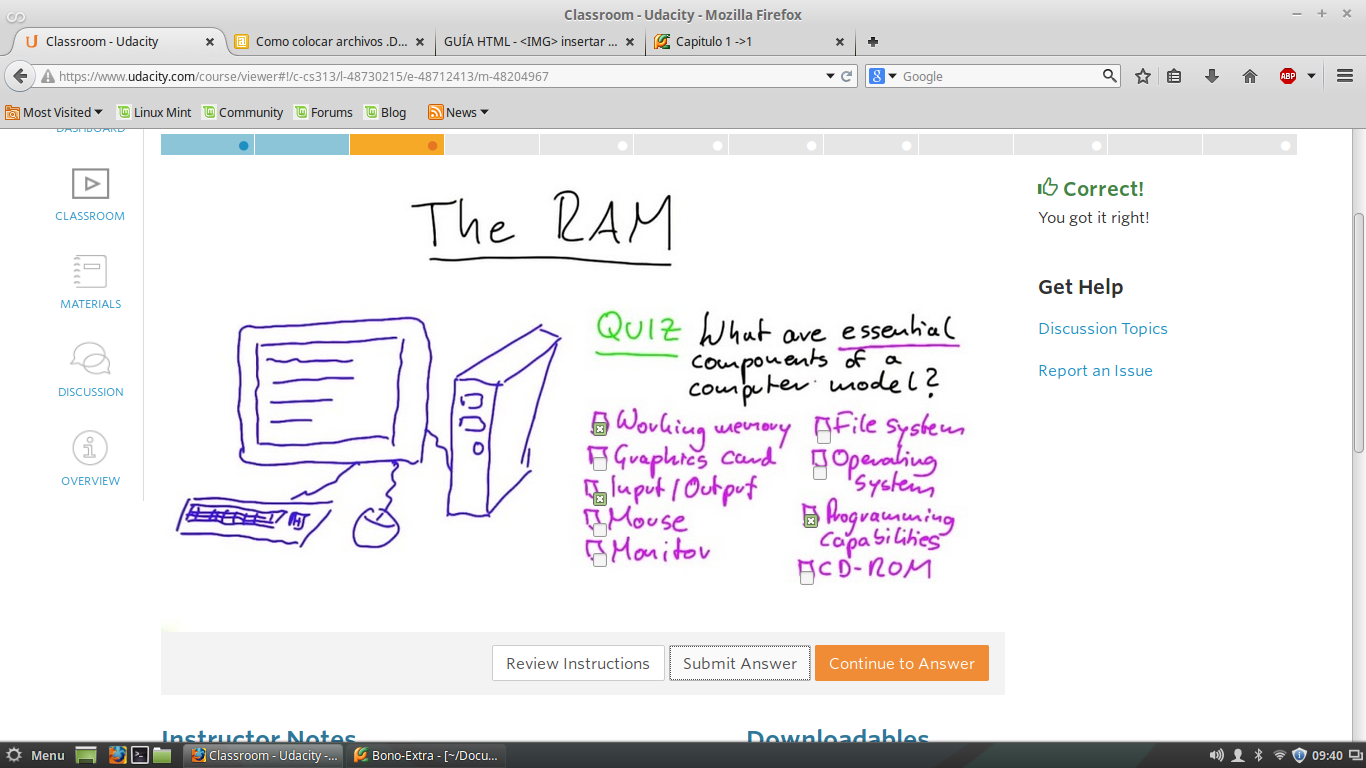 Classroom - Udacity - Mozilla Firefox
Classroom - Udacity
Como colocar archivos .D...
GUÍA HTML - <IMG> insertar ...
Capitulo 1 ->1
https://www.udacity.com/course/viewer#!/c-cs313/l-48730215/e-48712413/m-48204967
Google
ABP
Most Visited
Linux Mint
Community
Forums
Blog
News
DASHBOARD
CLASSROOM
MATERIALS
DISCUSSION
OVERVIEW
The RAM
QUIZ What are essential
components of a
computer model?
Working memory
Graphics card
Input/Output
Mouse
Monitor
File system
Operating
System
Programming
Capabilities
CD-ROM
Correct!
You got it right!
Get Help
Discussion Topics
Report an Issue
Review Instructions
Submit Answer
Continue to Answer
Instructor Notes
Downloadables
Menu
Classroom - Udacity -...
Bono-Extra - [~/Docu...
09:40